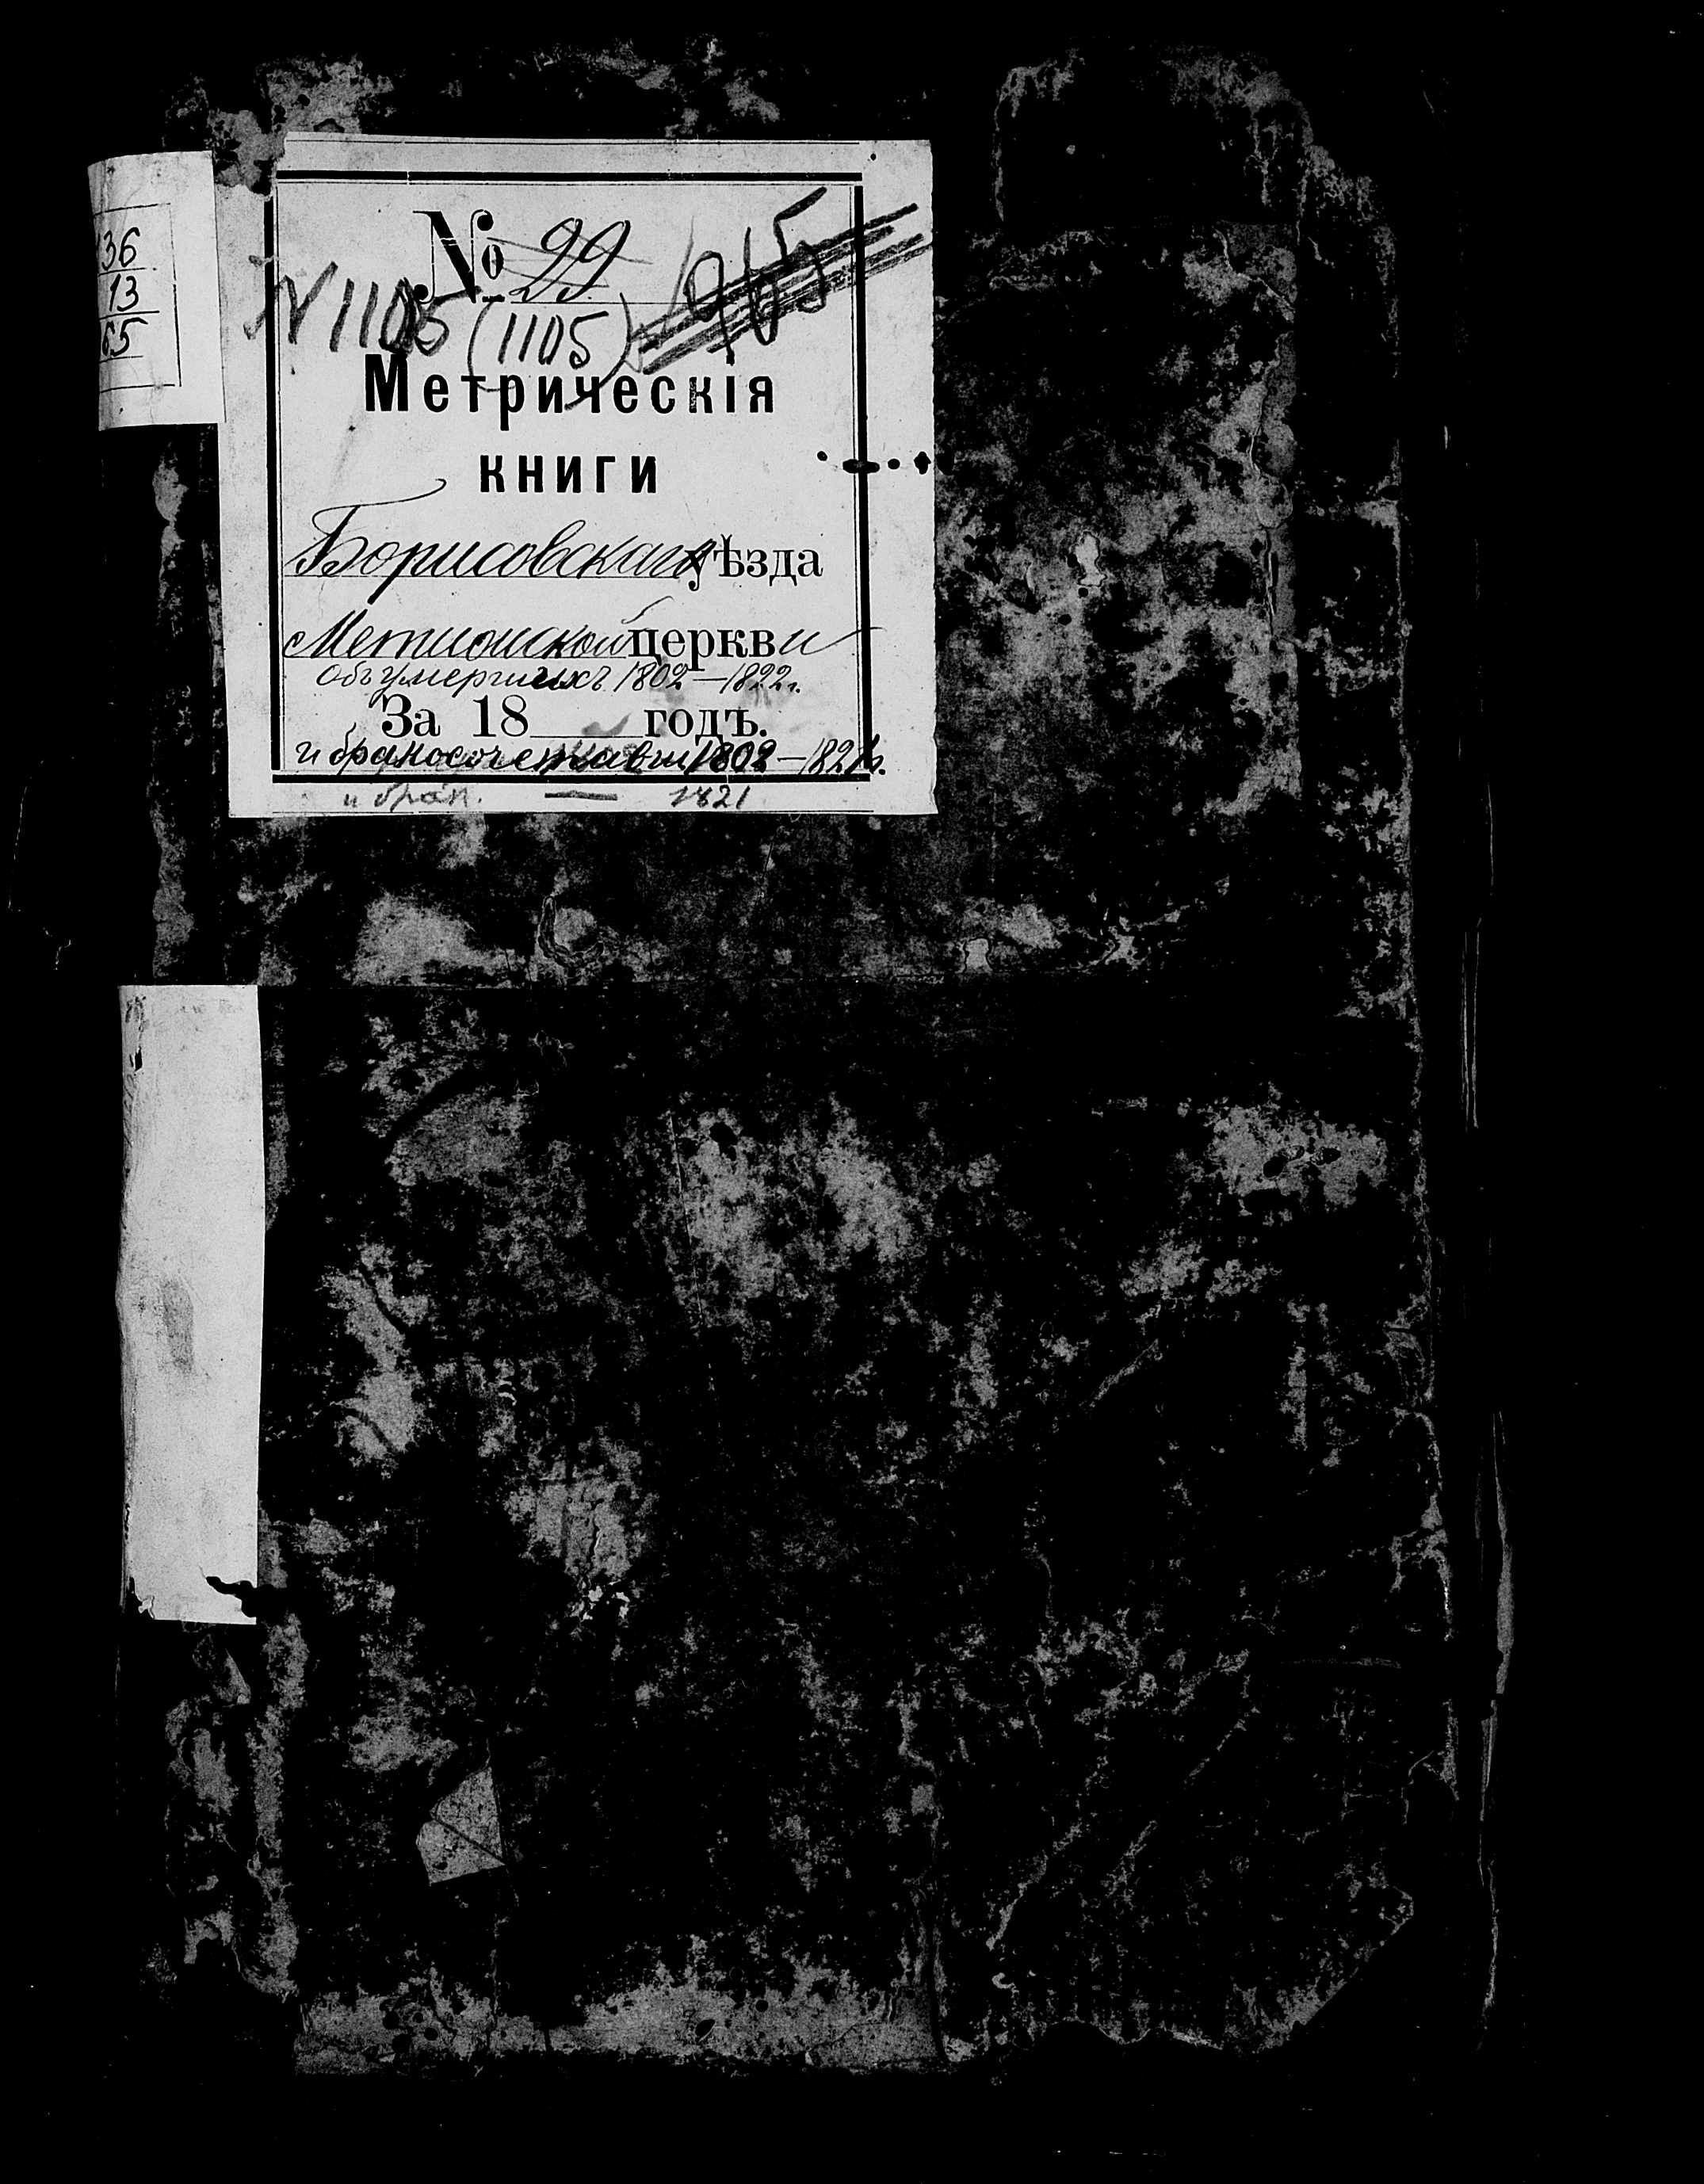 36
13
65
№ 29
N 1105 (1105) 1965
Метрическія
книги
Борисовскаго уѣзда
Метлической церкви
объ умершихъ 1802 – 1822 г.
За 18 годъ.
и бракосочетавш 1802 – 1821 г.
и брак. — 1821